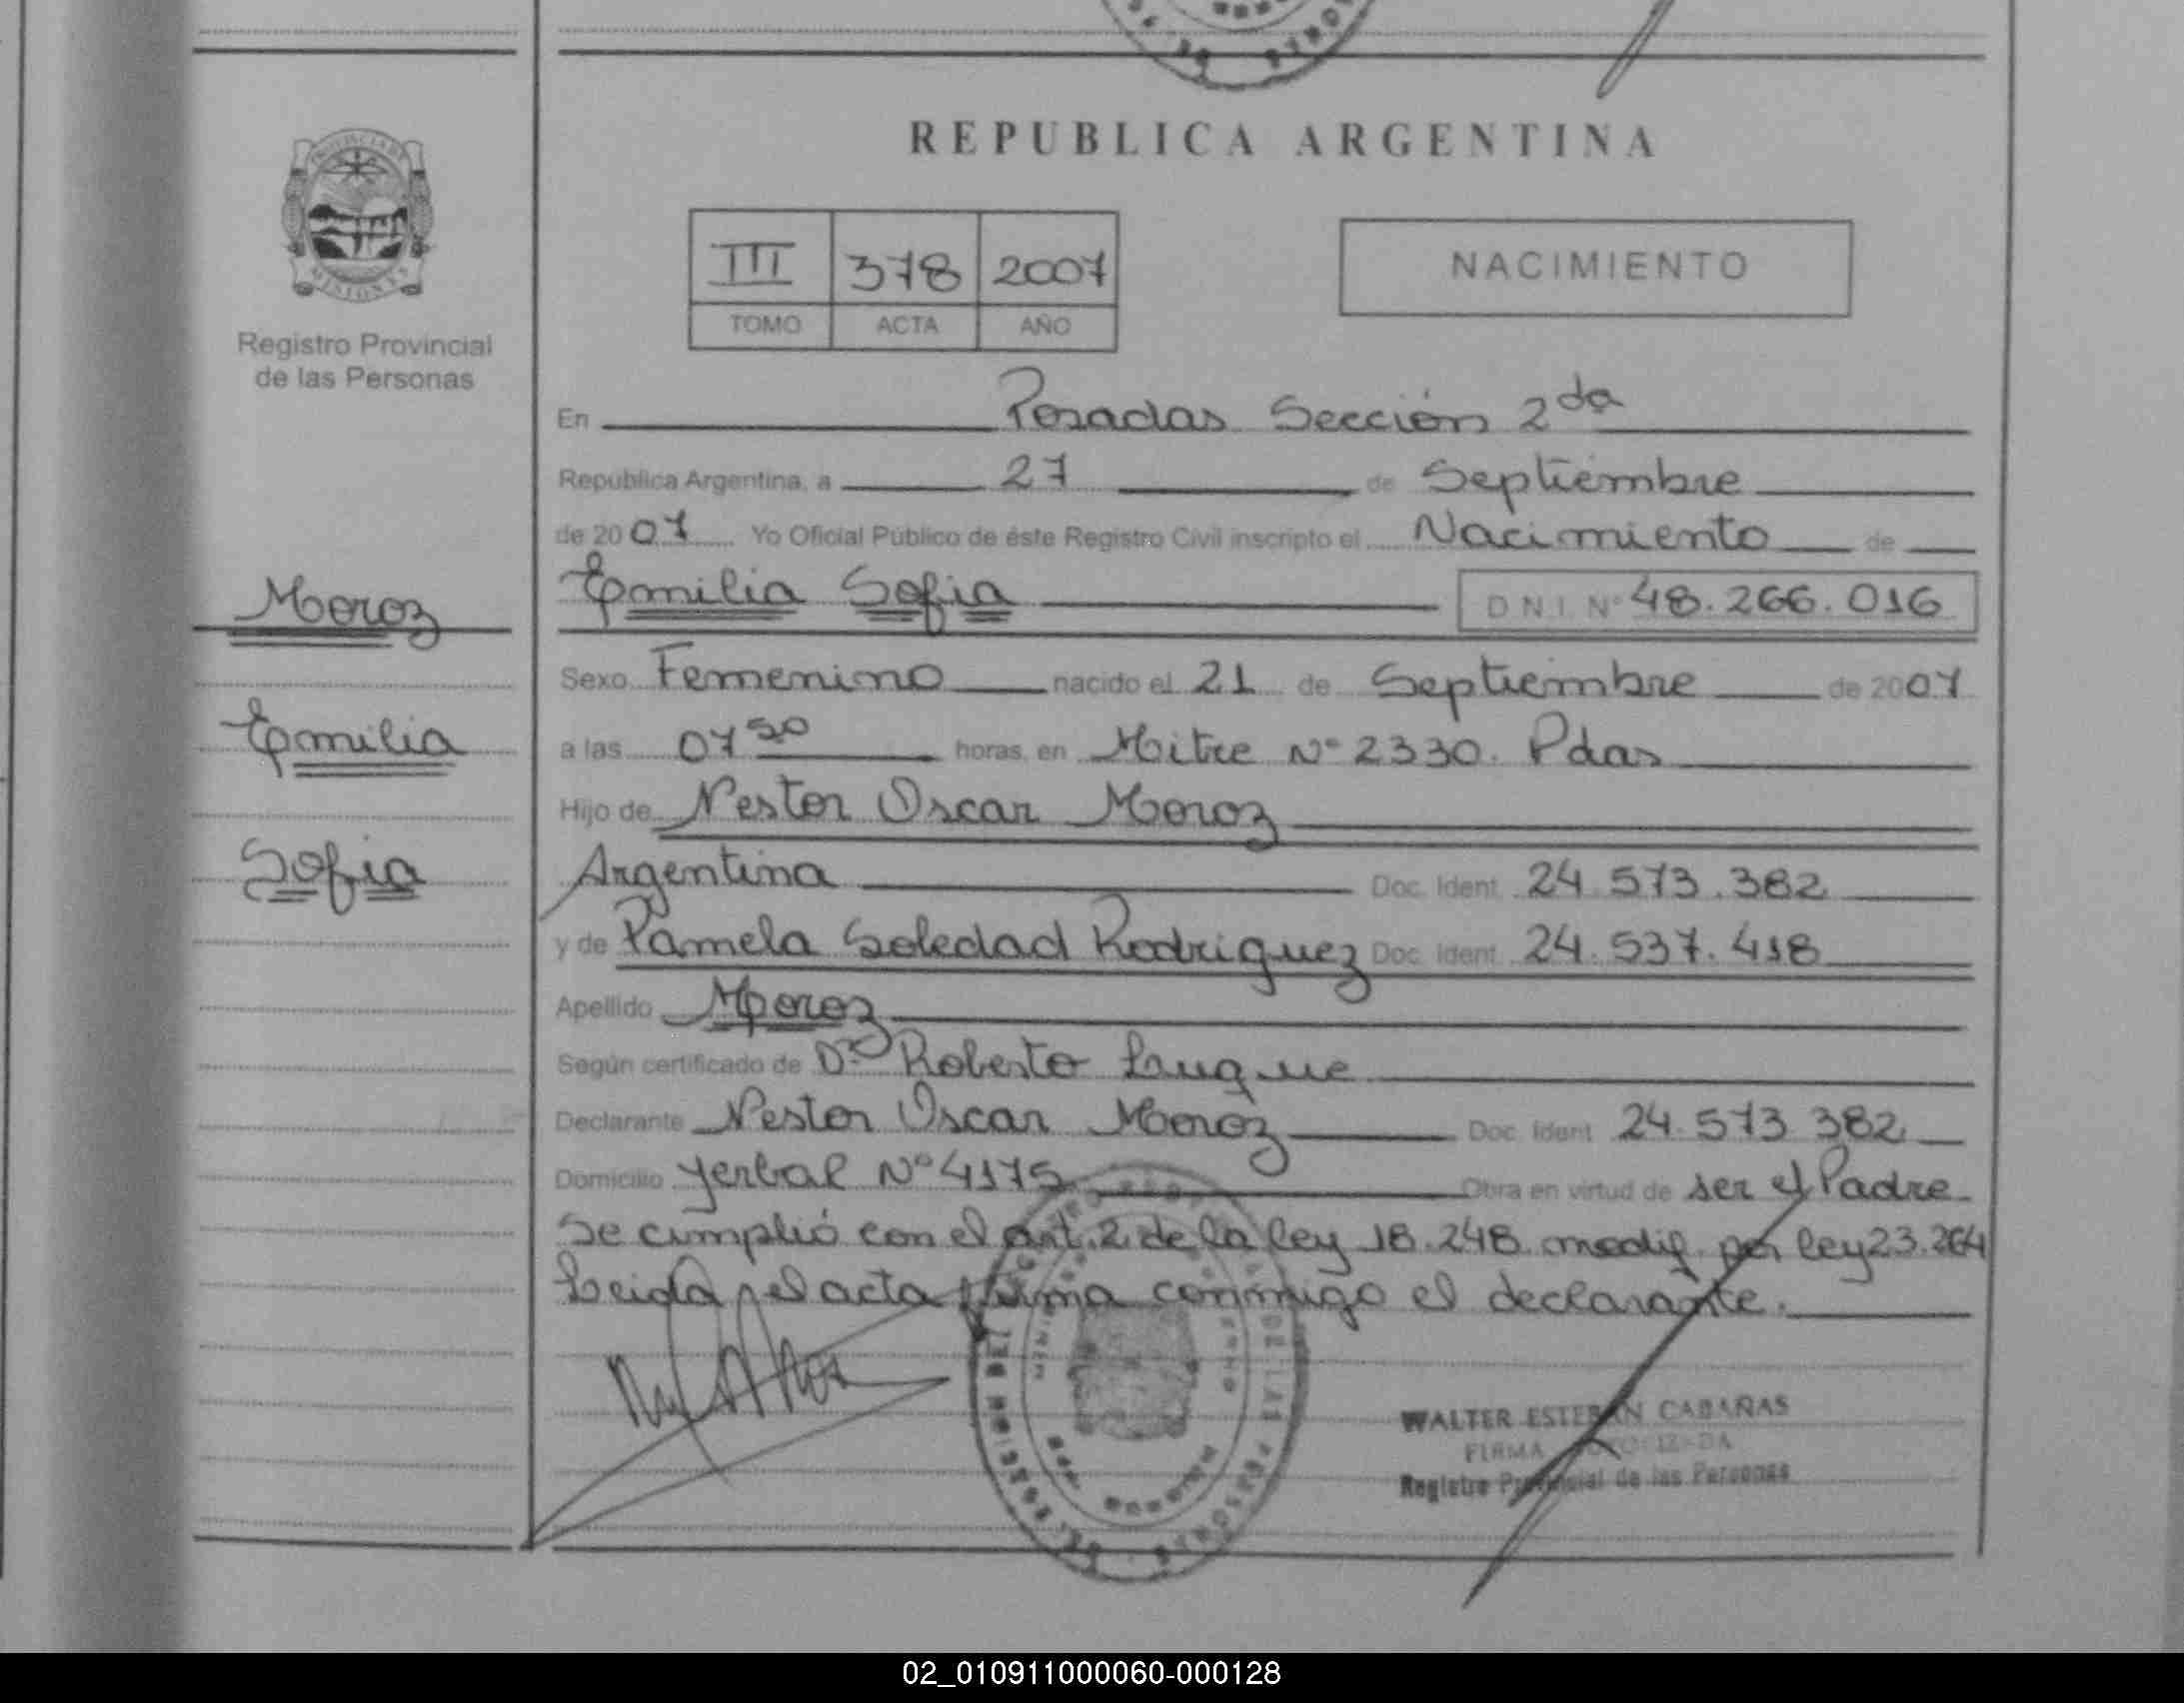 REPUBLICA ARGENTINA
III 378 2007
TOMO ACTA AÑO
NACIMIENTO
PROVINCIA DE
MISIONES
Registro Provincial
de las Personas
Moroz
Emilia
Sofia
En Posadas Sección 2da
Republica Argentina, a 27 de Septiembre
de 2007 Yo Oficial Público de éste Registro Civil inscripto el Nacimiento de
Emilia Sofia D.N.I. Nº 48.266.016
Sexo Femenino nacido el 21 de Septiembre de 2007
a las 07 50 horas, en Mitre Nº 2330. Pdas
Hijo de Nestor Oscar Moroz
Argentina Doc. Ident. 24.573.382
y de Pamela Soledad Rodriguez Doc. Ident. 24.537.418
Apellido Moroz
Según certificado de Dr Roberto Luque
Declarante Nestor Oscar Moroz Doc. Ident. 24.573.382
Domicilio Yerbal Nº 4175 Obra en virtud de ser el Padre
Se cumplió con el art. 2 de la ley 18.248 modif. por ley 23.264
Leida el acta firma conmigo el declarante.
WALTER ESTEBAN CABAÑAS
FIRMA AUTORIZADA
Registro Provincial de las Personas
02_010911000060-000128